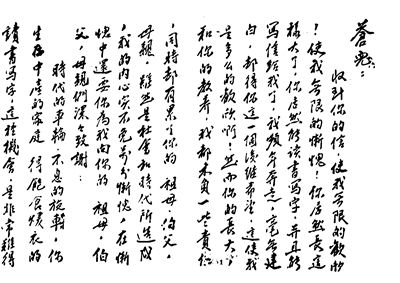 蓉兒：
收到你的信，使我無限的歡欣
！使我無限的慚愧！你居然長這
樣大了，你居然能讀書寫字，並且能
寫信給我了，我終年奔走，毫無建
白，卻得你這一個後繼希望，這使我
是多么的歡欣啊！然而你的長大
和你的教養，我都未負一些責任
，同時卻有累了你的祖母，伯父，
母親。雖然是社會和時代所造成
，我的內心實不免萬分慚愧。在慚
愧中還要你為我向你的祖母，伯
父，母親們深深致謝：
時代的車輪不息的旋轉，你
生在中產的家庭得飽食煖衣的
讀書寫字，這種機會，是非常難得